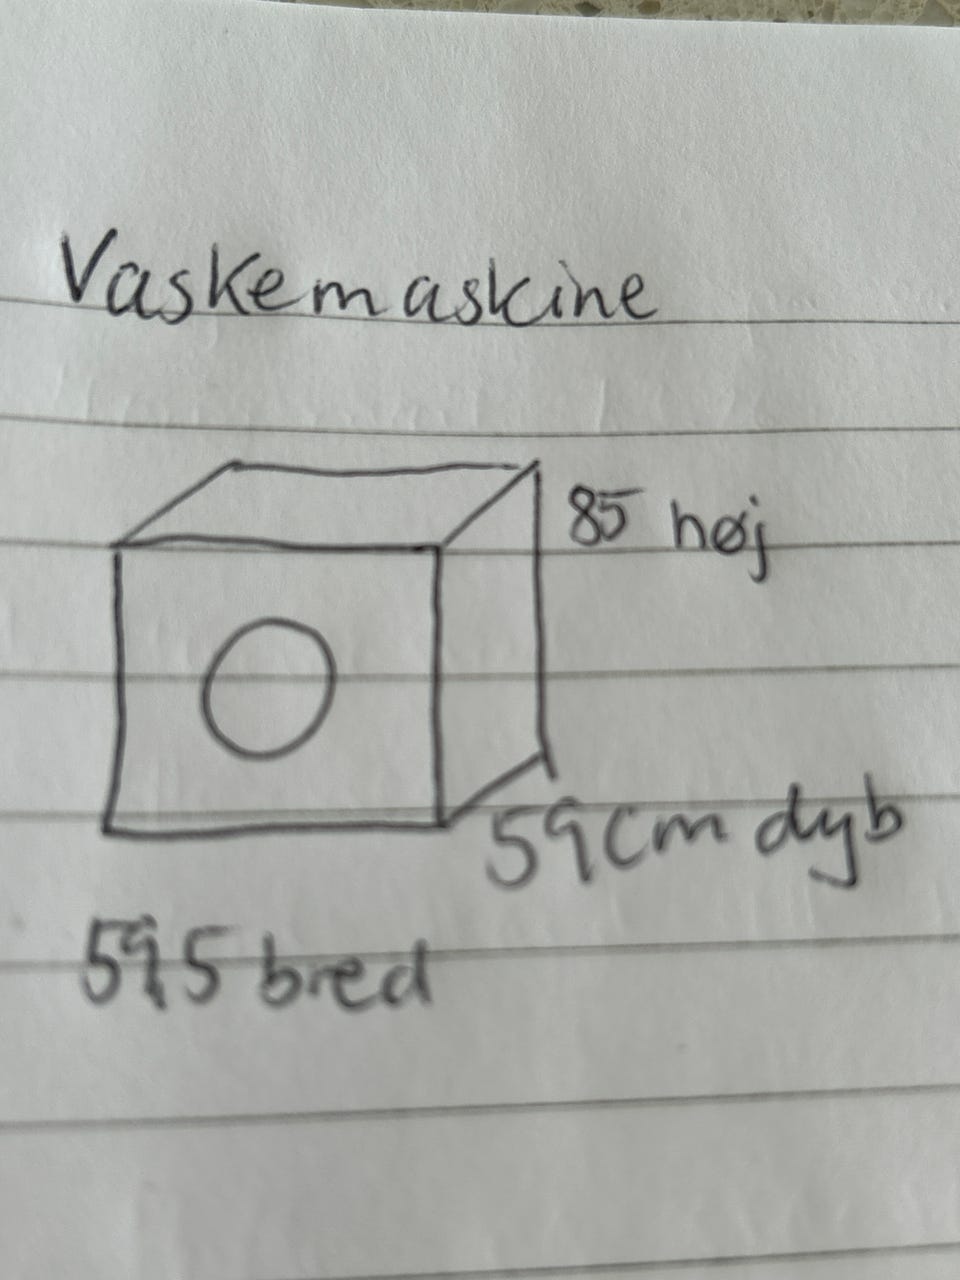 Vaskemaskine
85 høj
59cm dyb
59,5 bred